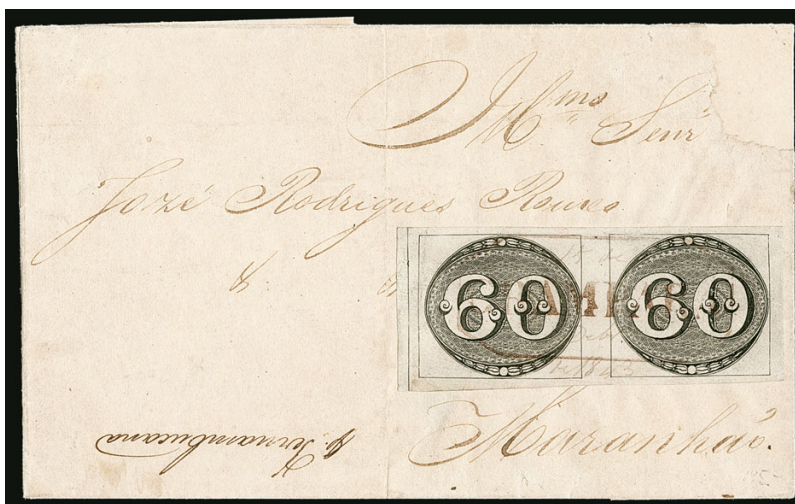 Illmo Senr
José Rodrigues Roxo
&
60 60
de 1843
Maranhão.
p. Pernambucana